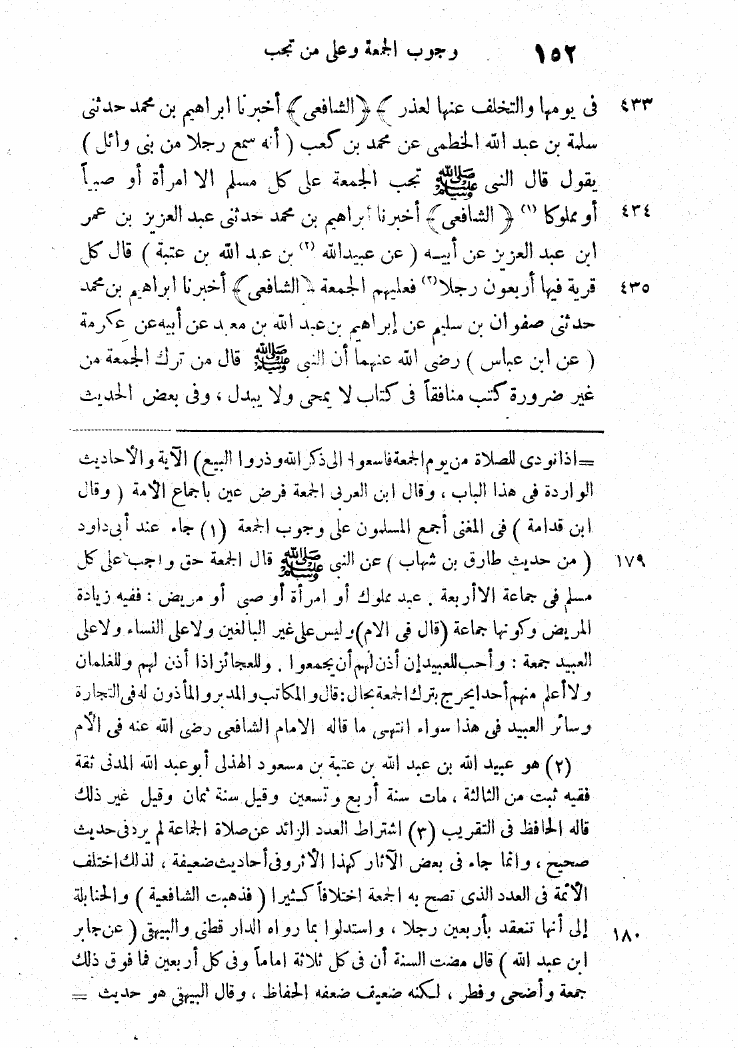 ١٥٢ وجوب الجمعة وعلى من تجب
٤٣٣ فى يومها والتخلف عنها لعذر ﴾ ﴿الشافعى﴾ أخبرنا ابراهيم بن محمد حدثنى
سلمة بن عبد الله الخطمى عن محمد بن كعب ( أنه سمع رجلا من بنى وائل )
يقول قال النبى ﷺ تجب الجمعة على كل مسلم الا امرأة أو صبياً
٤٣٤ أو مملوكا (١) ﴿الشافعى﴾ أخبرنا ابراهيم بن محمد حدثنى عبد العزيز بن عمر
ابن عبد العزيز عن أبيه ( عن عبيدالله (٢) بن عبد الله بن عتبة ) قال كل
٤٣٥ قرية فيها أربعون رجلا(٣) فعليهم الجمعة ﴿الشافعى﴾ أخبرنا ابراهيم بن محمد
حدثنى صفوان بن سليم عن إبراهيم بن عبد الله بن معبد عن أبيه عن عكرمة
( عن ابن عباس ) رضى الله عنهما أن النبى ﷺ قال من ترك الجمعة من
غير ضرورة كتب منافقاً فى كتاب لا يمحى ولا يبدل ، وفى بعض الحديث
= اذا نودى للصلاة من يوم الجمعة فاسعوا الى ذكر الله وذروا البيع) الآية والأحاديث
الواردة فى هذا الباب ، وقال ابن العربى الجمعة فرض عين باجماع الأمة ( وقال
ابن قدامة ) فى المغنى أجمع المسلمون على وجوب الجمعة (١) جاء عند أبى داود
١٧٩ ( من حديث طارق بن شهاب ) عن النبى ﷺ قال الجمعة حق واجب على كل
مسلم فى جماعة الا أربعة . عبد مملوك أو امرأة أو صبى أو مريض : ففيه زيادة
المريض وكونها جماعة (قال فى الام) وليس على غير البالغين ولا على النساء ولا على
العبيد جمعة : وأحب للعبيد إن أذن لهم أن يجمعوا . وللعجائز اذا أذن لهم وللغلمان
ولا أعلم منهم أحدا يحرج بترك الجمعة بحال: قال والمكاتب والمدبر والمأذون له فى التجارة
وسائر العبيد فى هذا سواء انتهى ما قاله الامام الشافعى رضى الله عنه فى الأم
(٢) هو عبيد الله بن عبد الله بن عتبة بن مسعود الهذلى أبو عبد الله المدنى ثقة
فقيه ثبت من الثالثة ، مات سنة أربع وتسعين وقيل سنة ثمان وقيل غير ذلك
قاله الحافظ فى التقريب (٣) اشتراط العدد الزائد عن صلاة الجماعة لم يرد فى حديث
صحيح ، وانما جاء فى بعض الآثار كهذا الأثر وفى أحاديث ضعيفة ، لذلك اختلف
الأئمة فى العدد الذى تصح به الجمعة اختلافاً كثيرا ( فذهبت الشافعية ) والحنابلة
١٨٠ إلى أنها تنعقد بأربعين رجلا ، واستدلوا بما رواه الدار قطنى والبيهقى ( عن جابر
ابن عبد الله ) قال مضت السنة أن فى كل ثلاثة اماماً وفى كل أربعين فما فوق ذلك
جمعة وأضحى وفطر ، لكنه ضعيف ضعفه الحفاظ ، وقال البيهقى هو حديث =